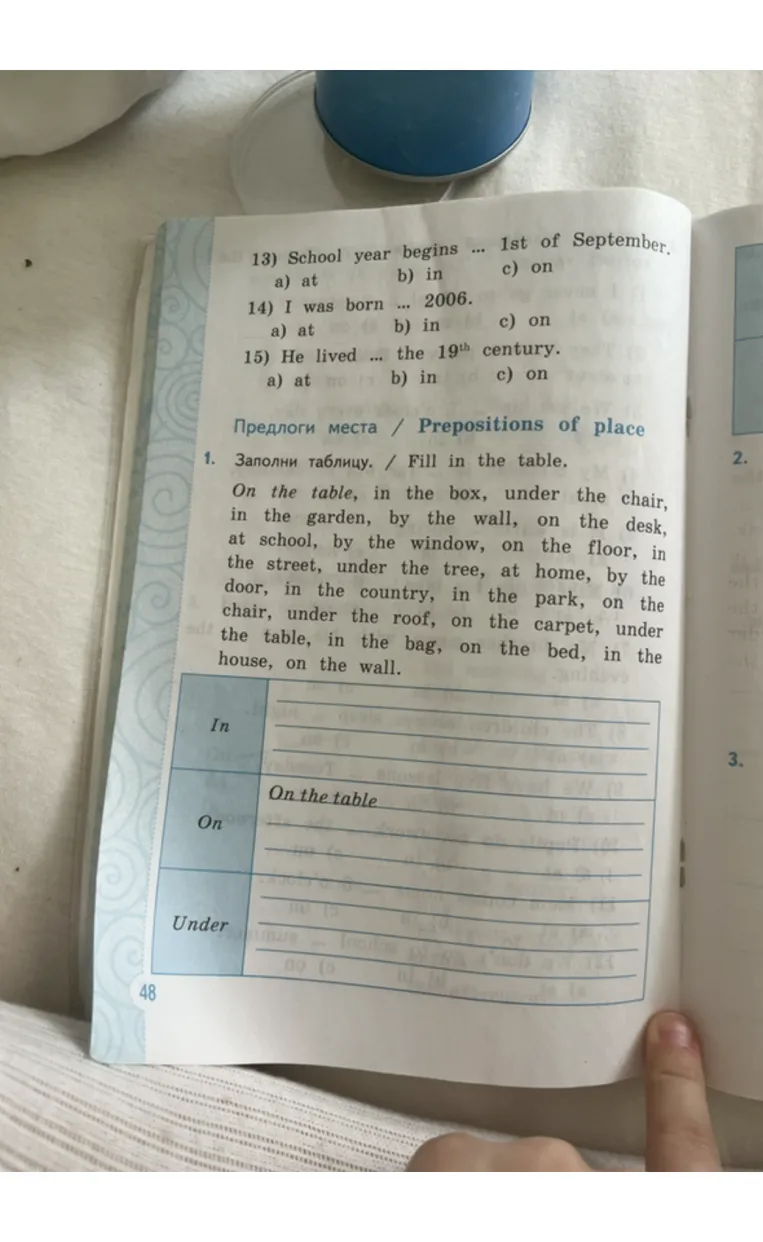 13) School year begins ... 1st of September.
a) at b) in c) on
14) I was born ... 2006.
a) at b) in c) on
15) He lived ... the 19th century.
a) at b) in c) on
Предлоги места / Prepositions of place
1. Заполни таблицу. / Fill in the table.
On the table, in the box, under the chair,
in the garden, by the wall, on the desk,
at school, by the window, on the floor, in
the street, under the tree, at home, by the
door, in the country, in the park, on the
chair, under the roof, on the carpet, under
the table, in the bag, on the bed, in the
house, on the wall.
In
On
On the table
Under
48
2.
3.